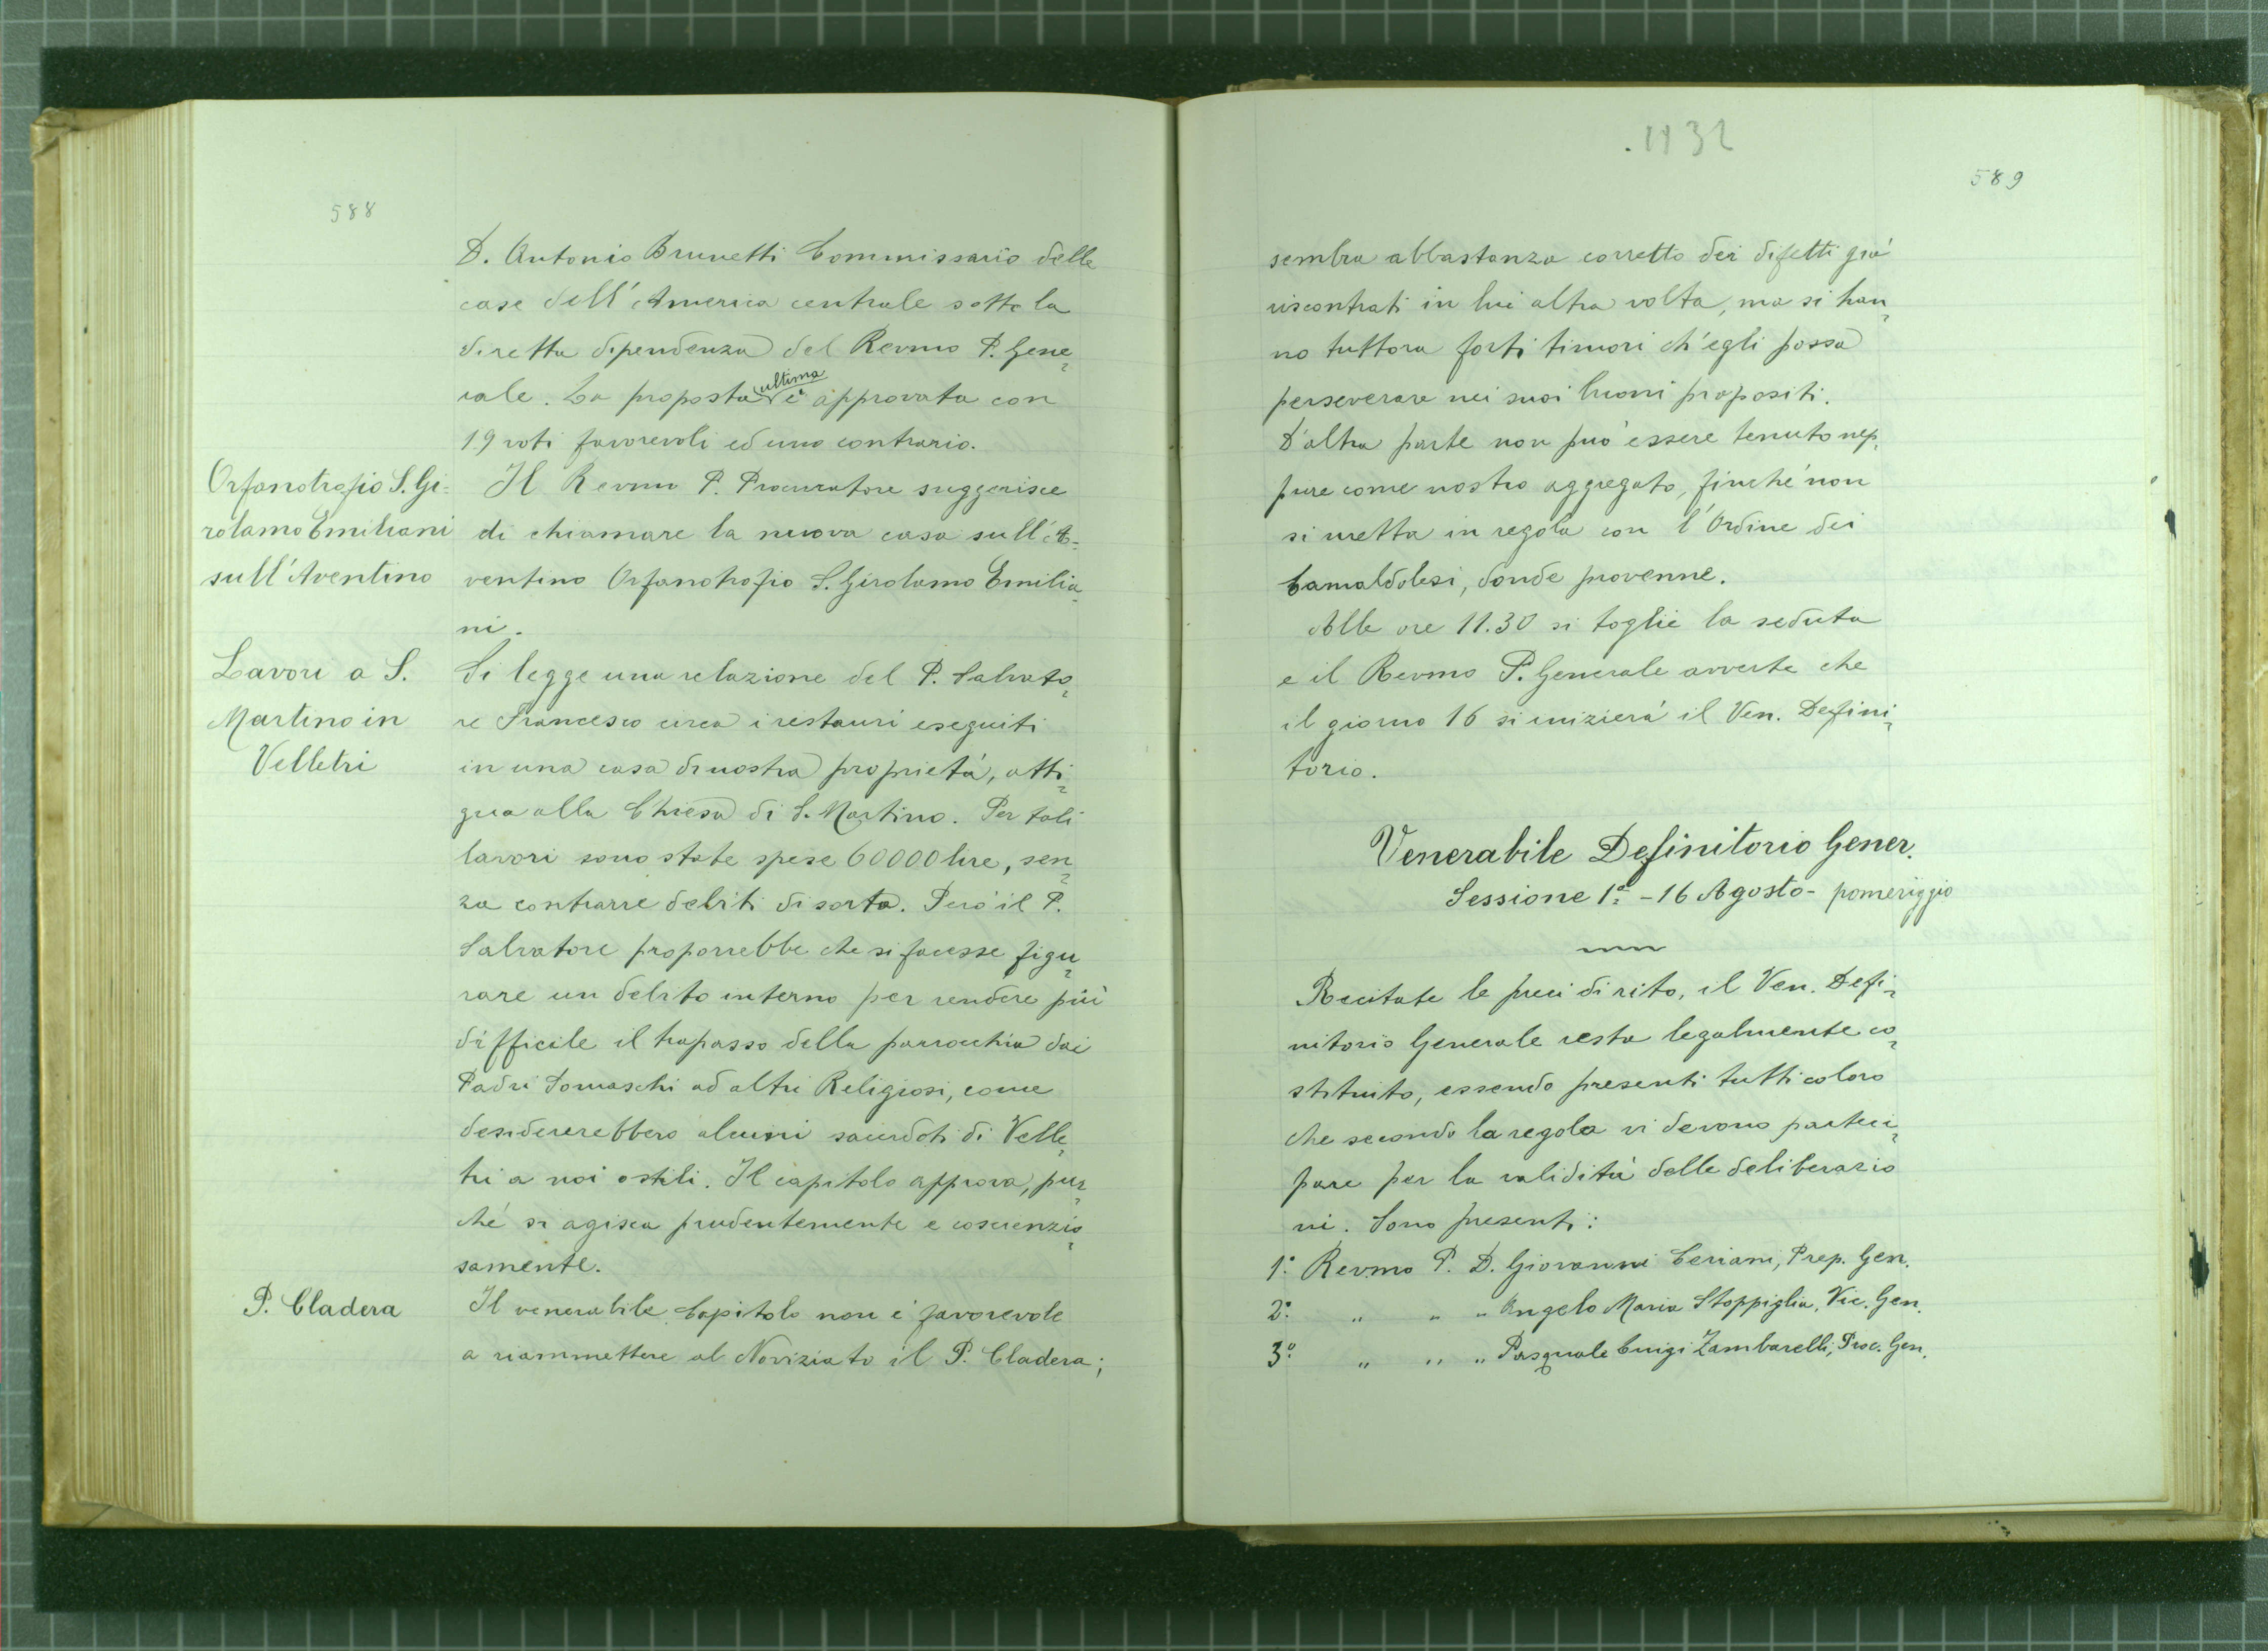 588
D. Antonio Brunetti Commissario delle
case dell'America centrale sotto la
diretta dipendenza del Revmo P. Gene=
rale. La proposta ultima è approvata con
19 voti favorevoli ed uno contrario.
Orfanotrofio S. Gi=
rolamo Emiliani
sull'Aventino
Il Revmo P. Procuratore suggerisce
di chiamare la nuova casa sull'A=
ventino Orfanotrofio S. Girolamo Emilia=
ni.
Lavori a S.
Martino in
Velletri
Si legge una relazione del P. Salvato=
re Francesco circa i restauri eseguiti
in una casa di nostra proprietà, atti=
gua alla Chiesa di S. Martino. Per tali
lavori sono state spese 60000 lire, sen=
za contrarre debiti di sorta. Però il P.
Salvatore proporrebbe che si facesse figu=
rare un debito interno per rendere più
difficile il trapasso della parrocchia dai
Padri Somaschi ad altri Religiosi, come
desidererebbero alcuni sacerdoti di Velle=
tri a noi ostili. Il capitolo approva, pur=
ché si agisca prudentemente e coscienzio=
samente.
P. Cladera
Il venerabile Capitolo non è favorevole
a riammettere al Noviziato il P. Cladera;
1932
589
sembra abbastanza corretto dei difetti già
riscontrati in lui altra volta, ma si han=
no tuttora forti timori ch'egli possa
perseverare nei suoi buoni propositi.
D'altra parte non può essere tenuto nep=
pure come nostro aggregato, finché non
si metta in regola con l'Ordine dei
Camaldolesi, donde provenne.
Alle ore 11.30 si toglie la seduta
e il Revmo P. Generale avverte che
il giorno 16 si inizierà il Ven. Defini=
torio.
Venerabile Definitorio Gener.
Sessione 1ª - 16 Agosto - pomeriggio
Recitate le preci di rito, il Ven. Defi=
nitorio Generale resta legalmente co=
stituito, essendo presenti tutti coloro
che secondo la regola vi devono parteci=
pare per la validità delle deliberazio
ni. Sono presenti:
1º Revmo P. D. Giovanni Ceriani, Prep. Gen.
2º " " " Angelo Maria Stoppiglia, Vic. Gen.
3º " " " Pasquale Luigi Zambarelli, Proc. Gen.